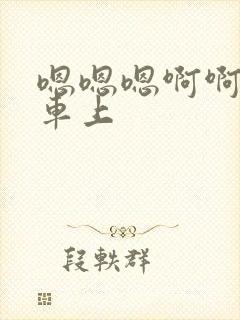 嗯嗯嗯啊啊
车上
段軼群